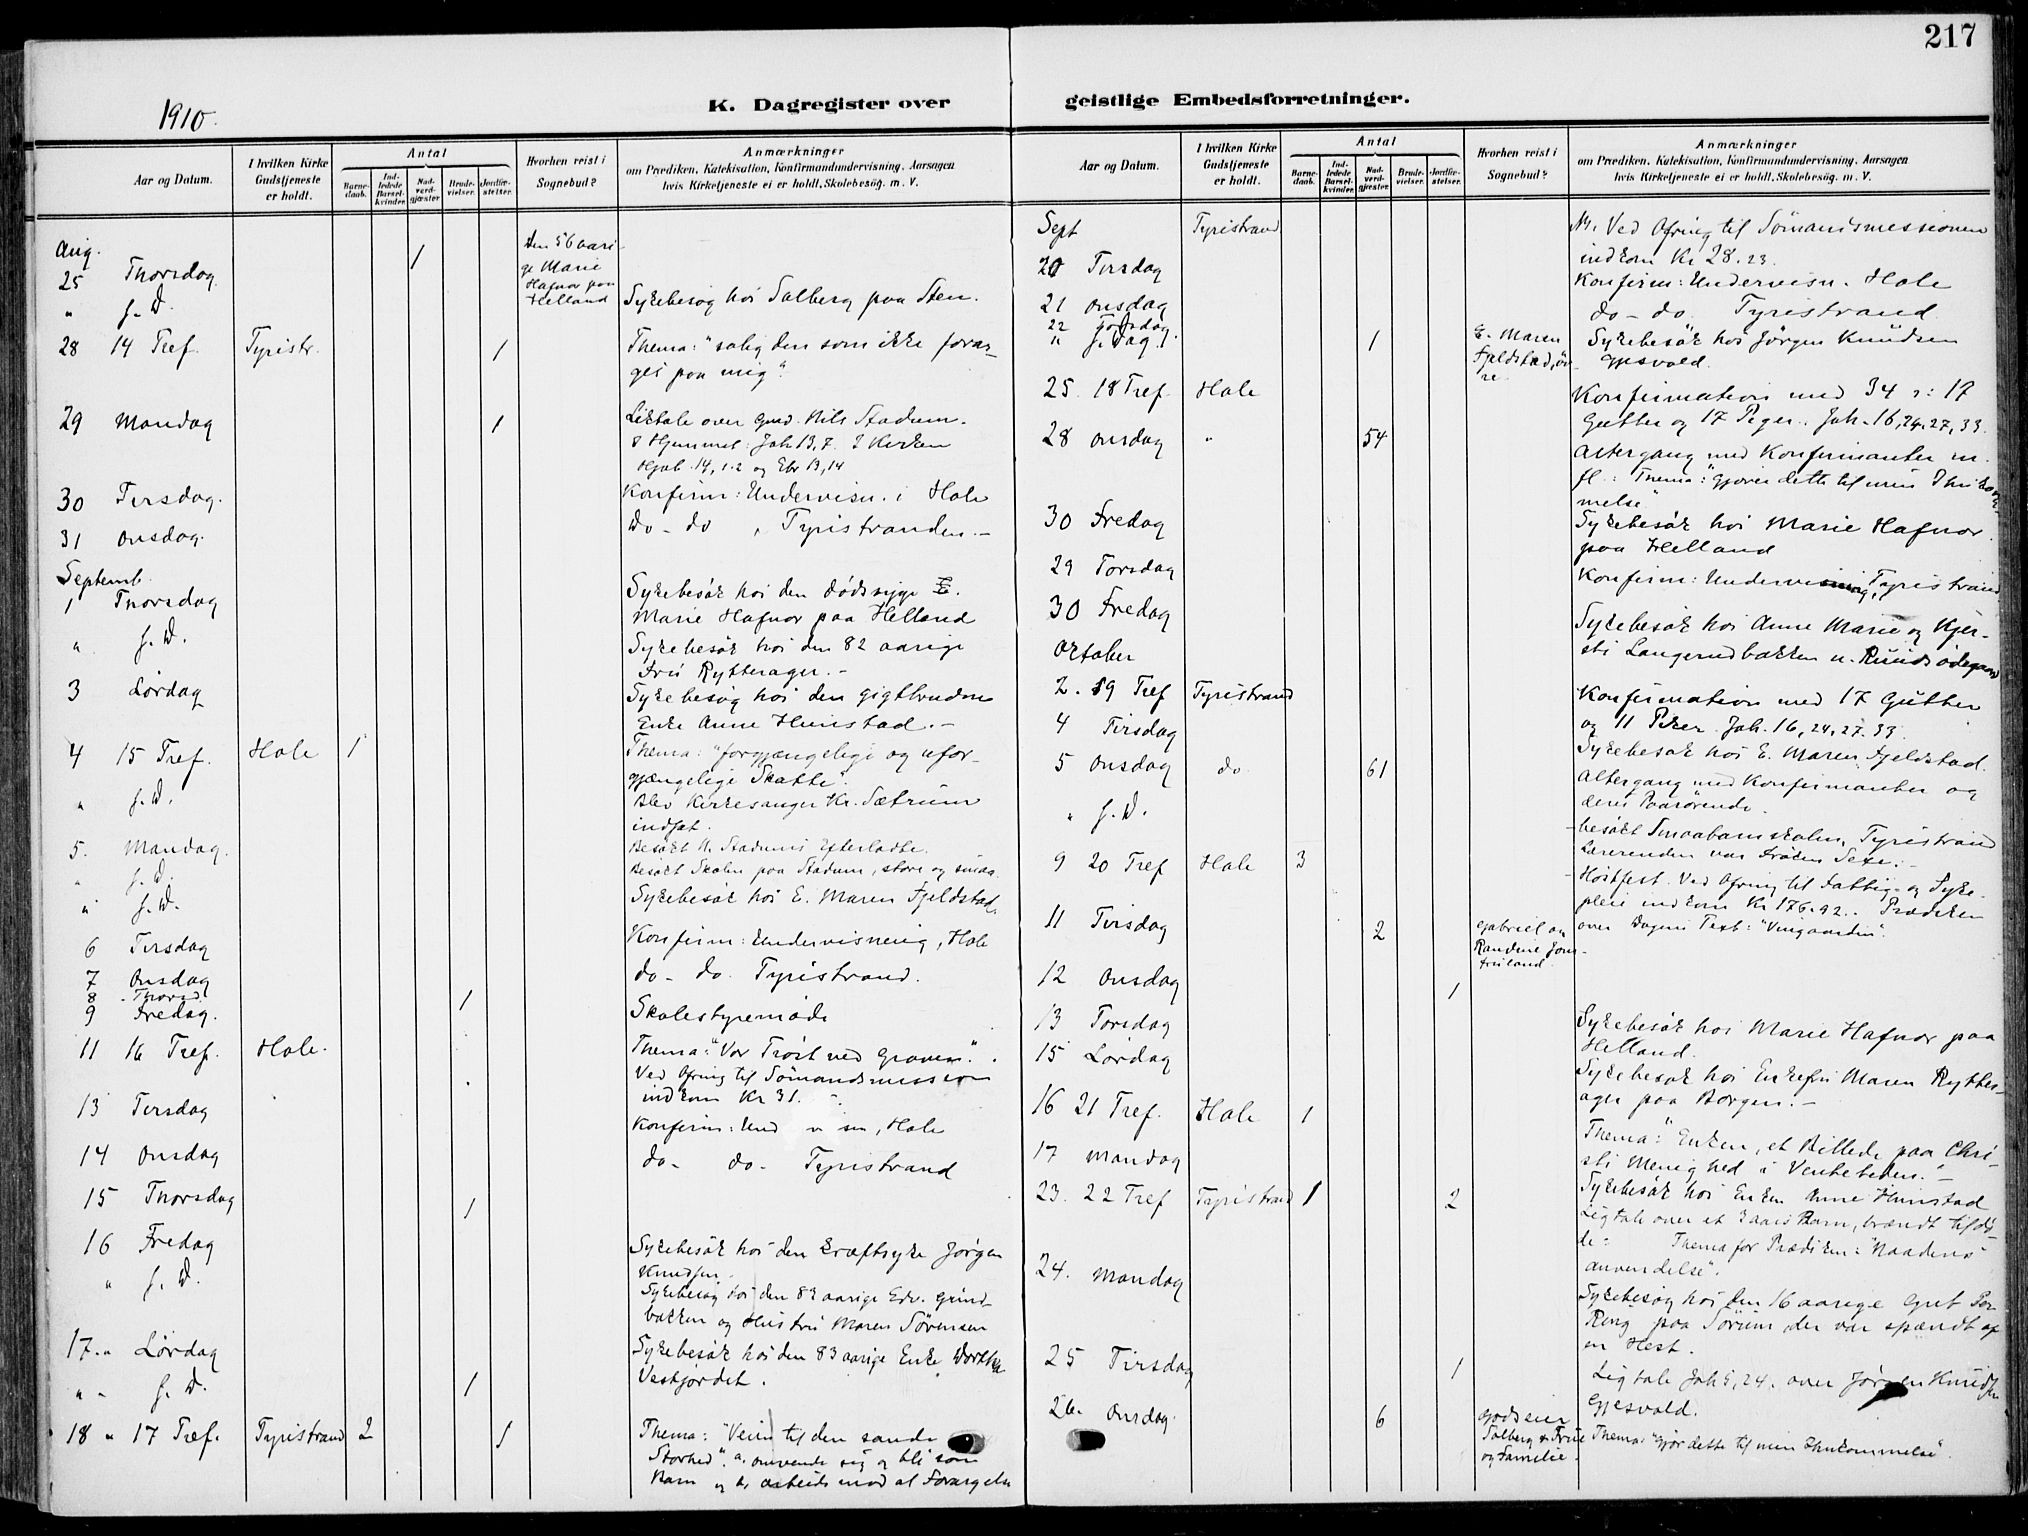 217
1910.
K. Dagregister over geistlige Embedsforretninger.
Aar og Datum.
I hvilken Kirke Gudstjeneste er holdt.
Antal
Barnedaab.
Indledede Barselkvinder.
Nadverdgjæster.
Brudevielser.
Jordfæstelser.
Hvorhen reist i Sognebud?
Anmærkninger
om Prædiken, Katekisation, Konfirmandundervisning, Aarsagen
hvis Kirketjeneste ei er holdt, Skolebesøg. m. V.
Aug.
25 Thorsdag 1 Den 56 aarige Marie Hafnor paa Helland
" s. D. Sygebesøg hos Solberg paa Sten.
28 14 Tref. Tyristr. 1 Thema: "salig den som ikke forar-
ges paa mig".
29 Mandag 1 Ligtale over Gmd. Nils Stadum.
i Hjemmet: Joh 13,7. I Kirken
Hjob. 14, 1-2 og Ebr 13,14
30 Tirsdag. Konfirm: Undervisn. i Hole
31 Onsdag. do - do , Tyristranden. -
Septemb.
1 Thorsdag Sygebesøk hos den dødssyge E.
Marie Hafnor paa Helland
" s. D. Sygebesøk hos den 82 aarige
Fru Rytterager. -
3 Lørdag Sygebesøg hos den gigtbrudne
Enke Anne Hunstad. -
4 15 Tref. Hole 1 Thema: "forgjængelige og ufor-
gjængelige Skatte".
" s. D. Blev Kirkesanger Kr. Sætrum
indsat.
5. Mandag. Besøkt N. Stadums Efterladte.
" s. D. Besøkt Skolen paa Stadum, store og smaa.
" s. D. Sygebesøk hos E. Maren Fjeldstad.
6 Tirsdag Konfirm: Undervisning, Hole
7 Onsdag do - do. Tyristrand.
8 - Thorsd. 1
9 Fredag. Skolestyremøde
11 16 Tref. Hole. Thema: "Vor Trøst ved Graven".
Ved Ofring til Sømandsmission
indkom Kr 31.
13 Tirsdag Konfirm: Und sn, Hole
14 Onsdag do - do - Tyristrand
15 Thorsdag 1
16 Fredag Sygebesøk hos den kræftsyke Jørgen
Knudsen.
" s. D. Sygebesøg hos den 82 aarige Edv. Grund-
bakken og Hustru Maren Sørensen
17. " Lørdag Sygebesøk hos den 83 aarige Enke Dorthea
Vestjordet.
" - s. D. 1
18 " 17 Tref. Tyristrand 2 1 Thema: "Veien til den sande
Storhed". a. omvende sig og bli som
Barn og b, arbeide mod al Forargelse
Aar og Datum.
I hvilken Kirke Gudstjeneste er holdt.
Antal
Barnedaab.
Indledede Barselkvinder.
Nadverdgjæster.
Brudevielser.
Jordfæstelser.
Hvorhen reist i Sognebud?
Anmærkninger
om Prædiken, Katekisation, Konfirmandundervisning, Aarsagen
hvis Kirketjeneste ei er holdt, Skolebesøg. m. V.
Sept Tyristrand Ved Ofring til Sømandsmissionen
indkom Kr 28.23.
20 Tirsdag Konfirm: Undervisn. Hole
21 Onsdag do - do. Tyristrand
22 Torsdag
" s. Dag. 1 E. Maren Fjeldstad, øvre. Sygebesøk hos Jørgen Knudsen
Gjesvold.
25. 18 Tref. Hole Konfirmation med 34 : 17
Gutter og 17 Piger. Joh. 16, 24, 27, 33.
28 Onsdag " 54 Altergang med Konfirmanter m.
fl.: Thema: "Gjører dette til min Ihukom-
melse"
30 Fredag Sygebesøk hos Marie Hafnor
paa Helland
29 Torsdag Konfirm: Undervisning, Tyristrand
30 Fredag Sygebesøk hos Anne Marie og Kjer-
sti Langerudbakken u. Ruudsødegaard
Oktober
2. 19 Tref Tyristrand Konfirmation med 17 Gutter
og 11 Piker. Joh. 16, 24, 27. 33.
4 Tirsdag Sygebesøk hos E. Maren Fjeldstad.
5 Onsdag do. 61 Altergang med Konfirmanter og
deres Paarørende.
" s. D. besøkt Smaabarnskolen, Tyristrand
Lærerinden var Frøken Sexe. -
9 20 Tref Hole 3 Høstfest. Ved Ofring til Fattig- og Syke-
pleie indkom Kr 176.92. Prædiken
over Dagens Text: "Vingaarden".
11 Tirsdag 2 Gabriel og Randine Jonsruland.
12 Onsdag 1
13 Torsdag Sygebesøk hos Marie Hafnor paa
Helland.
15 Lørdag Sygebesøk hos Enkefru Maren Rytter-
ager paa Borgen. -
16 21 Tref. Hole 1 Thema: "Enken, et Billede paa Chri-
sti Menighed i Ventetiden." -
17 Mandag Sygebesøk hos Enken Anne Hunstad
23. 22 Tref Tyristrand 1 2 Ligtale over et 3 aars Barn, brændt tildø-
de. Thema for Prædiken: "Naadens
anvendelse".
24. Mandag Sygebesøg hos den 16 aarige Gut Per
Ring paa Sørum, der var spændt af
en Hest.
25 Tirsdag 1 Ligtale Joh 5, 24, over Jørgen Knudsen
Gjesvold.
26. Onsdag. 6 Godseier Solberg & Frue og Familie. Thema: "Gjør dette til min Ihukommelse".